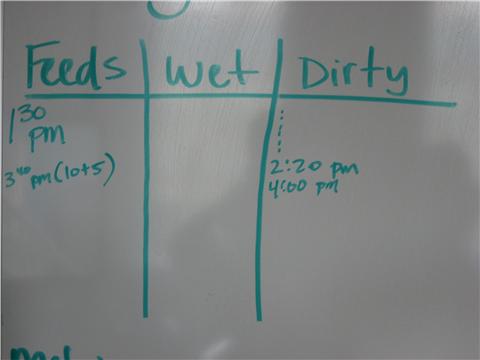 Feeds Wet Dirty
1 30 pm
3 40 pm (10+5)
2:20 pm
4:00 pm